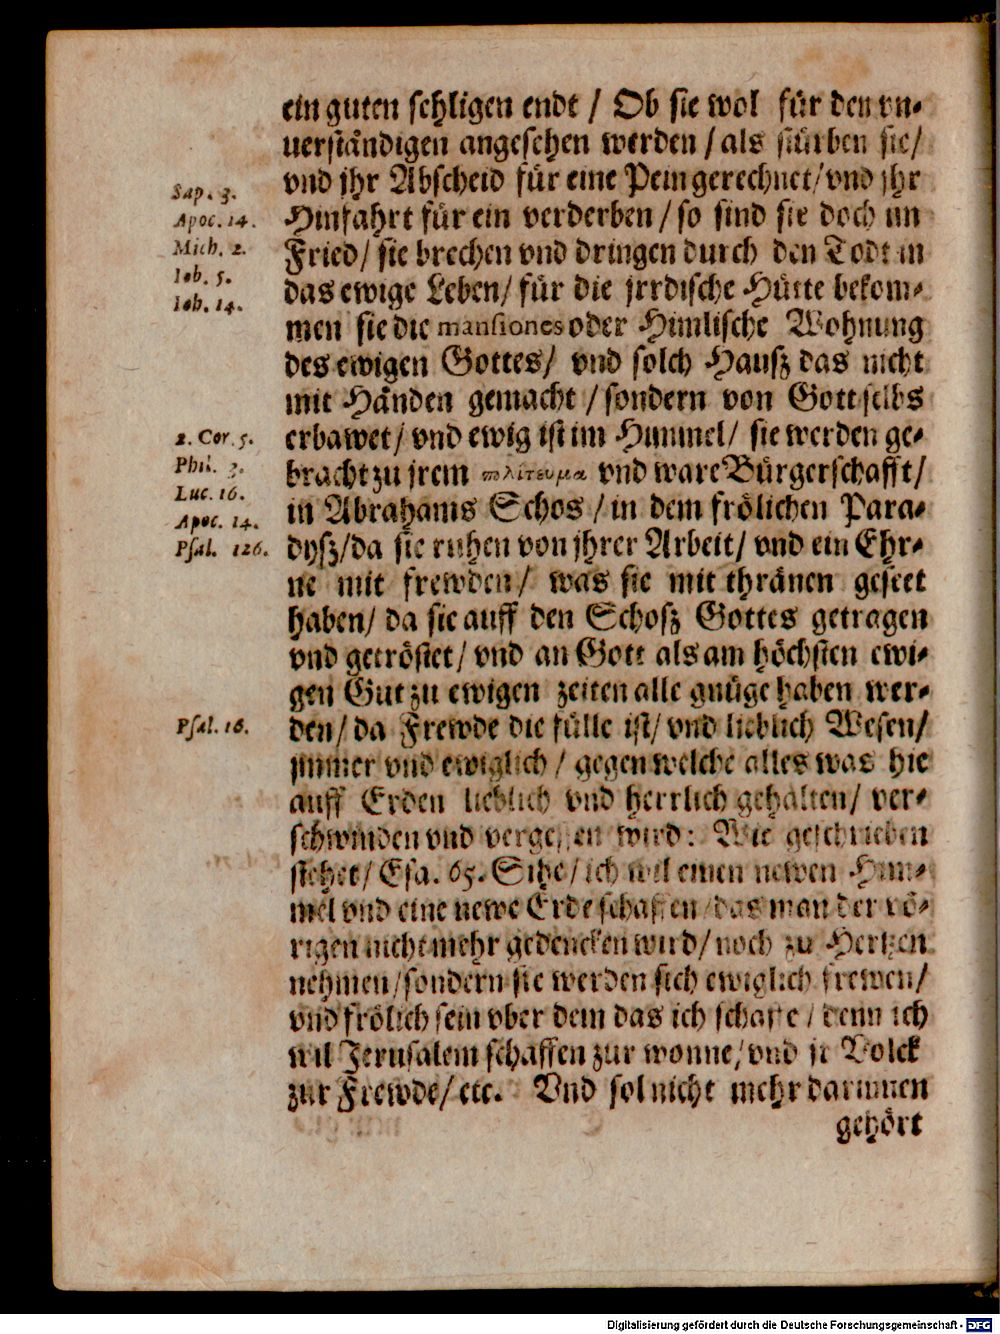 ein guten sehligen endt / Ob sie wol für den vn-
uerständigen angesehen werden / als stürben sie /
vnd jhr Abscheid für eine Pein gerechnet / vnd jhr
Sap. 3.
Hinfahrt für ein verderben / so sind sie doch im
Apoc. 14.
Fried / sie brechen vnd dringen durch den Todt in
Mich. 2.
das ewige Leben / für die jrrdische Hütte bekom-
Ioh. 5.
Ioh. 14.
men sie die mansiones oder Himlische Wohnung
des ewigen Gottes / vnd solch Hausz das nicht
mit Händen gemacht / sondern von Gott selbs
erbawet / vnd ewig ist im Himmel / sie werden ge-
2. Cor. 5.
bracht zu jrem πολίτευμα vnd ware Bürgerschafft /
Phil. 3.
in Abrahams Schos / in dem frölichen Para-
Luc. 16.
Apoc. 14.
dysz / da sie ruhen von jhrer Arbeit / vnd ein Ehr-
Psal. 126.
ne mit frewden / was sie mit thränen geseet
haben / da sie auff den Schosz Gottes getragen
vnd getröstet / vnd an Gott als am höchsten ewi-
gen Gut zu ewigen zeiten alle gnüge haben wer-
den / da Frewde die fülle ist / vnd lieblich Wesen /
Psal. 16.
jmmer vnd ewiglich / gegen welche alles was hie
auff Erden lieblich vnd herrlich gehalten / ver-
schwinden vnd vergessen wird: Wie geschrieben
stehet / Esa. 65. Sihe / ich wil einen newen Him-
mel vnd eine newe Erde schaffen / das man der vö-
rigen nicht mehr gedencken wird / noch zu Hertzen
nehmen / sondern sie werden sich ewiglich frewen /
vnd frölich sein vber dem das ich schaffe / denn ich
wil Jerusalem schaffen zur wonne / vnd jr Volck
zur Frewde / etc. Vnd sol nicht mehr darinnen
gehört
Digitalisierung gefördert durch die Deutsche Forschungsgemeinschaft - DFG